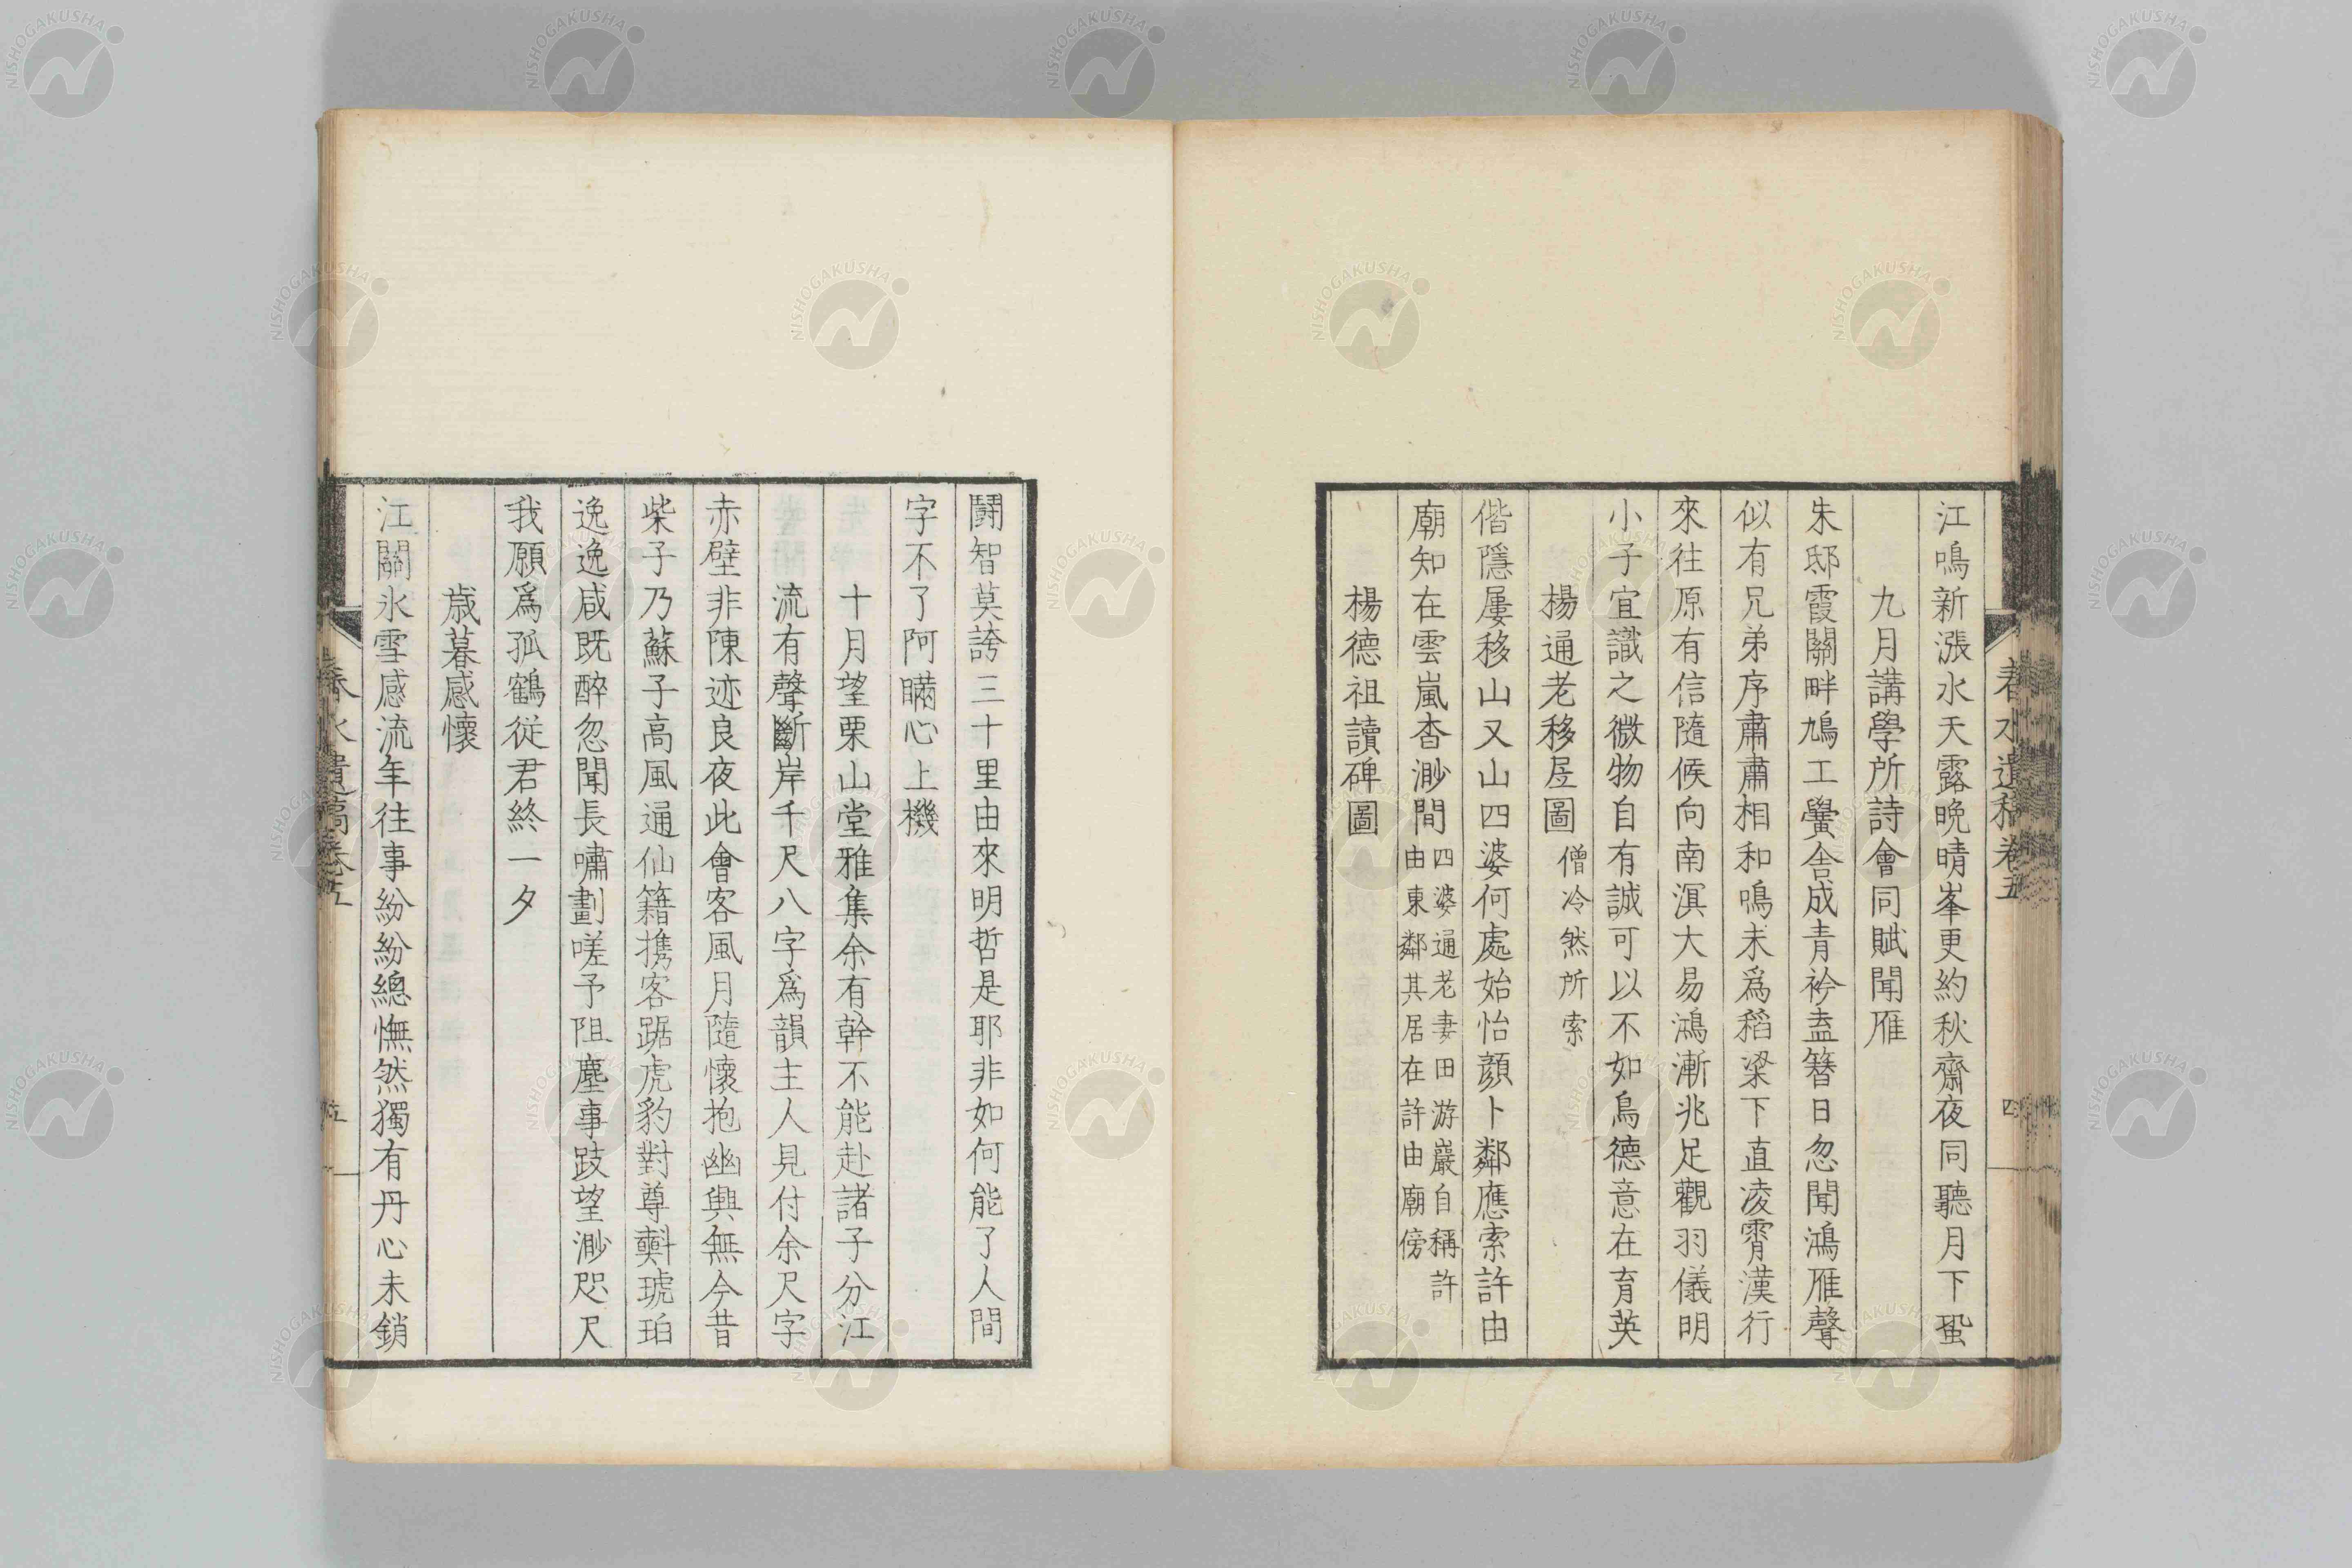 春水遺稿卷五
四
江鳴新漲水天露晩晴峯更約秋齋夜同聽月下蛩
九月講學所詩會同賦聞雁
朱邸霞關畔鳩工黌舎成青衿盍簪日忽聞鴻雁聲
似有兄弟序肅肅相和鳴未爲稻梁下直凌霄漢行
來往原有信隨候向南溟大易鴻漸兆足觀羽儀明
小子宜識之微物自有誠可以不如鳥德意在育英
楊通老移居圖 僧冷然所索
偕隱屢移山又山四婆何處始怡顔卜鄰應索許由
廟知在雲嵐杳渺間 四婆通老妻田游巖自稱許
由東鄰其居在許由廟傍
楊德祖讀碑圖
鬪智莫誇三十里由來明哲是耶非如何能了人間
字不了阿瞞心上機
十月望栗山堂雅集余有幹不能赴諸子分江
流有聲斷岸千尺八字爲韻主人見付余尺字
赤壁非陳迹良夜此會客風月隨懷抱幽興無今昔
柴子乃蘇子高風通仙籍携客踞虎豹對尊㪺琥珀
逸逸咸既醉忽聞長嘯劃嗟予阻塵事跂望渺咫尺
我願爲孤鶴従君終一夕
歳暮感懷
江關氷雪感流年往事紛紛總憮然獨有丹心未銷
春水遺稿卷五
五
NISHOGAKUSHA